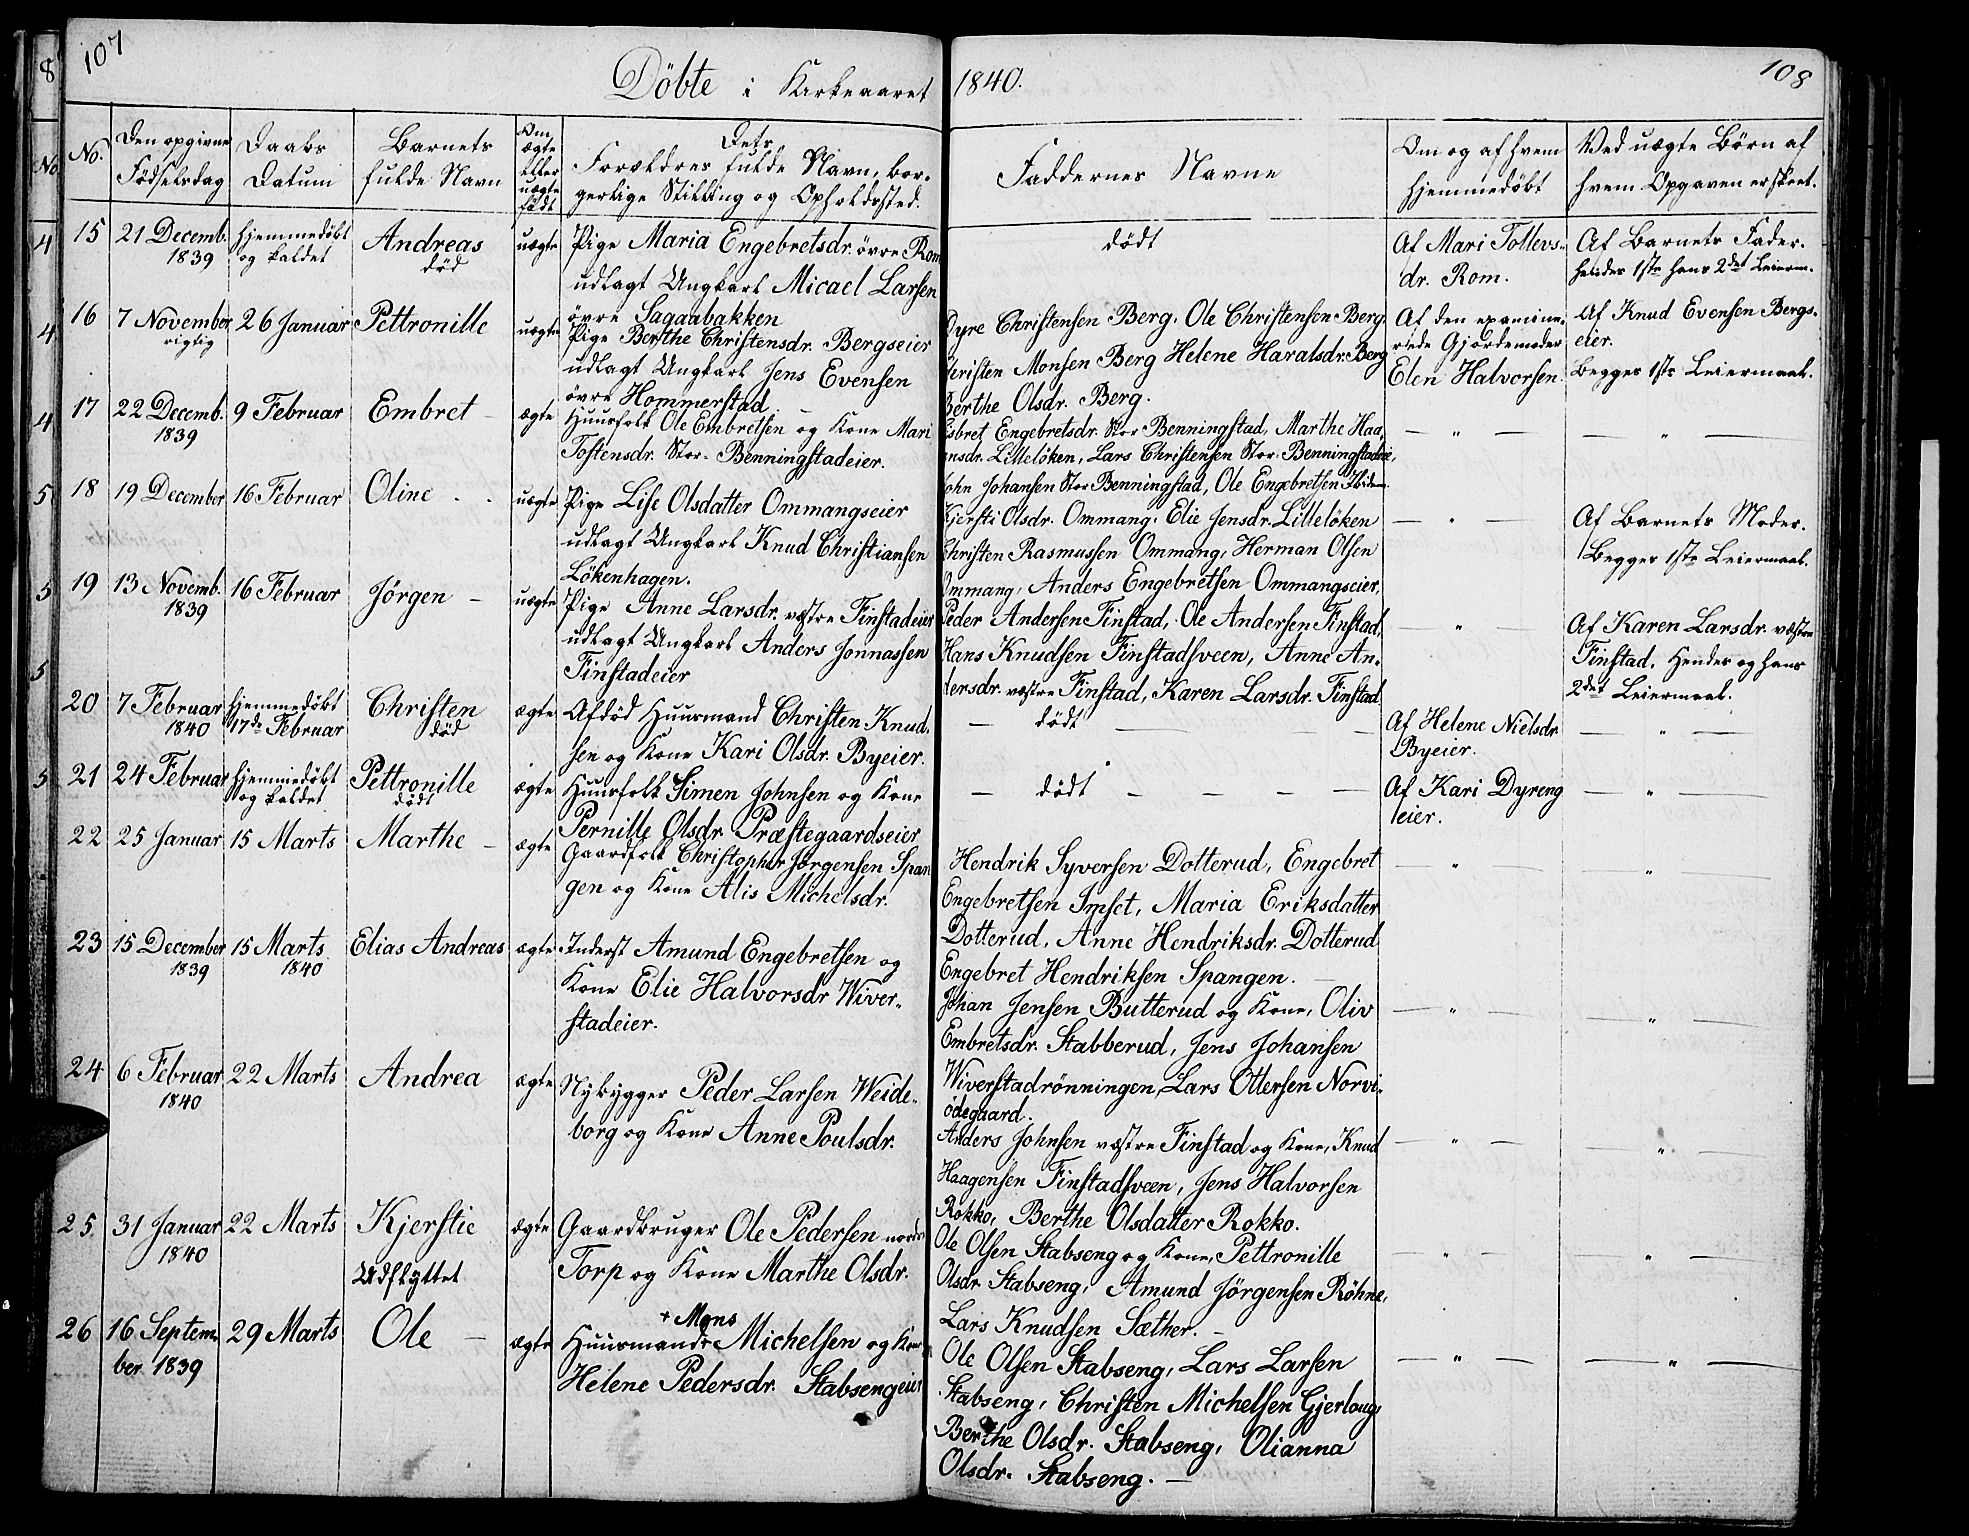 107
Döbte i Kirkeaaret 1840.
108
No.
Den opgivne Födselsdag
Daabs Datum
Barnets fulde Navn
Om ægte eller uægte födt
Dets Forældres fulde Navn, borgerlige Stilling og Opholdssted.
Faddernes Navne
Om og af hvem hjemmedöbt
Ved uægte Börn af hvem Opgaven er skeet.
15
21 Decemb. 1839
hjemmedöbt og kaldet
Andreas
död
uægte
Pige Maria Engebretsdr. övre Rom
udlagt Ungkarl Micael Larsen
övre Sagaabakken
dödt
Af Mari Tollevs-
dr. Rom.
Af Barnets Fader.
hendes 1ste hans 2det Leierm.
16
7 November
rigtig
26 Januar
Pettronille
uægte
Pige Berthe Christensdr. Bergseier
udlagt Ungkarl Jens Evensen
övre Hommerstad
Dyre Christensen Berg, Ole Christensen Berg
Christen Monsen Berg Helene Haralsdr. Berg
Berthe Olsdr. Berg.
Af den examine-
rede Gjordemoder
Elen Halvorsen
Af Knud Evensen Bergs-
eier.
Begges 1ste Leiermaal.
17
22 Decemb. 1839
9 Februar
Embret
ægte
Huusfolk Ole Embretsen og Kone Mari
Tostensdr. Stor-Benningstadeier.
Engebretsdr. Stor Benningstad, Marthe Haa-
nsdr. Lilleløken, Lars Christensen Stor-Benningstadeie,
John Johansen Stor Benningstad, Ole Engebretsen Ibidem.
— " —
— " —
18
19 December
16 Februar
Oline
uægte
Pige Lise Olsdatter Ommangseier
udlagt Ungkarl Knud Christiansen
Lökenhagen.
Kjersti Olsdr. Ommang, Elie Jensdr. Lilleløken
Christen Rasmussen Ommang, Herman Olsen
Ommang, Anders Engebretsen Ommangseier,
— " —
Af Barnets Moder.
Begges 1ste Leiermaal.
19
13 Novemb. 1839
16 Februar
Jørgen
uægte
Pige Anne Larsdr. væstre Finstadeier
udlagt Ungkarl Anders Jonnassen
Finstadeier
Peder Andersen Finstad, Ole Andersen Finstad,
Hans Knudsen Finstadsveen, Anne An-
dersdr. væstre Finstad, Karen Larsdr. Finstad
— " —
Af Karen Larsdr. væstre
Finstad. Hendes og hans
2det Leiermaal.
20
7 Februar 1840
hjemmedöbt
17de Februar
Christen
död
ægte
Afdöd Huusmand Christen Knud-
sen og Kone Kari Olsdr. Byeier.
— dödt —
Af Helene Nielsdr
Byeier.
— " —
21
24 Februar
hjemmedöbt og kaldet
Pettronille
dödt
ægte
Huusfolk Simen Johnsen og Kone
Pernille Olsdr. Præstegaardseier
— dödt —
Af Kari Dyreng
eier.
— " —
22
25 Januar
15 Marts
Marthe
ægte
Gaardfolk Christopher Jørgensen Span
gen og Kone Alis Michelsdr.
Hendrik Syversen Dotterud, Engebret
Engebretsen Imset, Maria Eriksdatter
Dotterud, Anne Hendriksdr. Dotterud
Engebret Hendriksen Spangen.
— " —
— " —
23
15 December 1839
15 Marts 1840
Elias Andreas
ægte
Inderst Amund Engebretsen og
Kone Elie Halvorsdr Wiver-
stadeier.
Johan Jensen Butterud og Kone, Oliv
Embretsdr. Stabberud, Jens Johansen
Wiverstadrönningen, Lars Ottersen Norvi-
ödegaard.
— " —
— " —
24
6 Februar 1840
22 Marts
Andrea
ægte
Nybygger Peder Larsen Weide-
borg og Kone Anne Poulsdr.
Anders Johnsen væstre Finstad og Kone, Knud
Haagensen Finstadsveen, Jens Halvorsen
Rokko, Berthe Olsdatter Rokko.
— " —
— " —
25
31 Januar 1840
22 Marts
Kjerstie
Udflyttet
ægte
Gaardbruger Ole Pedersen nordr
Torp og Kone Marthe Olsdr.
Ole Olsen Stabseng og Kone, Pettronille
Olsdr. Stabseng, Amund Jørgensen Röhne,
Lars Knudsen Sæther.
— " —
— " —
26
16 Septem-
ber 1839
29 Marts
Ole
ægte
+ Mons
Huusmand + Michelsen og Kone
Helene Pedersdr. Stabsengeier
Ole Olsen Stabseng, Lars Larsen
Stabseng, Christen Michelsen Gjerlaug,
Berthe Olsdr. Stabseng, Olianna
Olsdr. Stabseng.
— " —
— " —
8
No
4
4
4
5
5
5
5